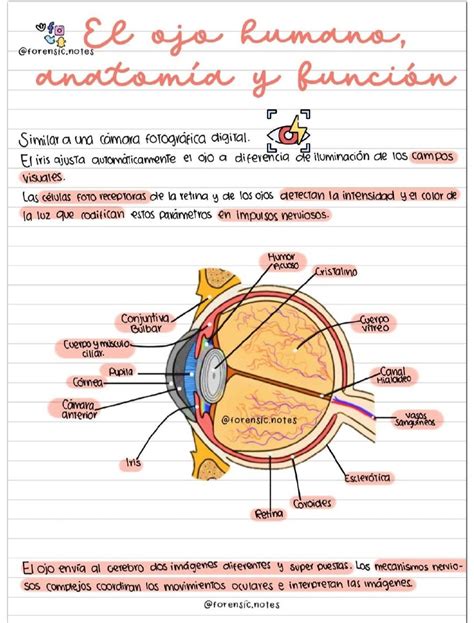 @forensic.notes
El ojo humano,
anatomía y función
Similar a una cámara fotográfica digital.
El iris ajusta automáticamente el ojo a diferencia de iluminación de los campos
visuales.
Las células foto receptoras de la retina y de los ojos detectan la intensidad y el color de
la luz que codifican estos parámetros en impulsos nerviosos.
Humor
Acuoso
Cristalino
Conjuntiva
Bulbar
Cuerpo
vitreo
Cuerpo y músculo
ciliar.
Pupila
Canal
Hialadeo
Córnea
Cámara
anterior
@forensic.notes
vasos
sanguíneos
Iris
Esclerótica
Coroides
Retina
El ojo envía al cerebro dos imágenes diferentes y super puestas. Los mecanismos nervio-
sos complejos coordinan los movimientos oculares e interpretan las imágenes.
@forensic.notes